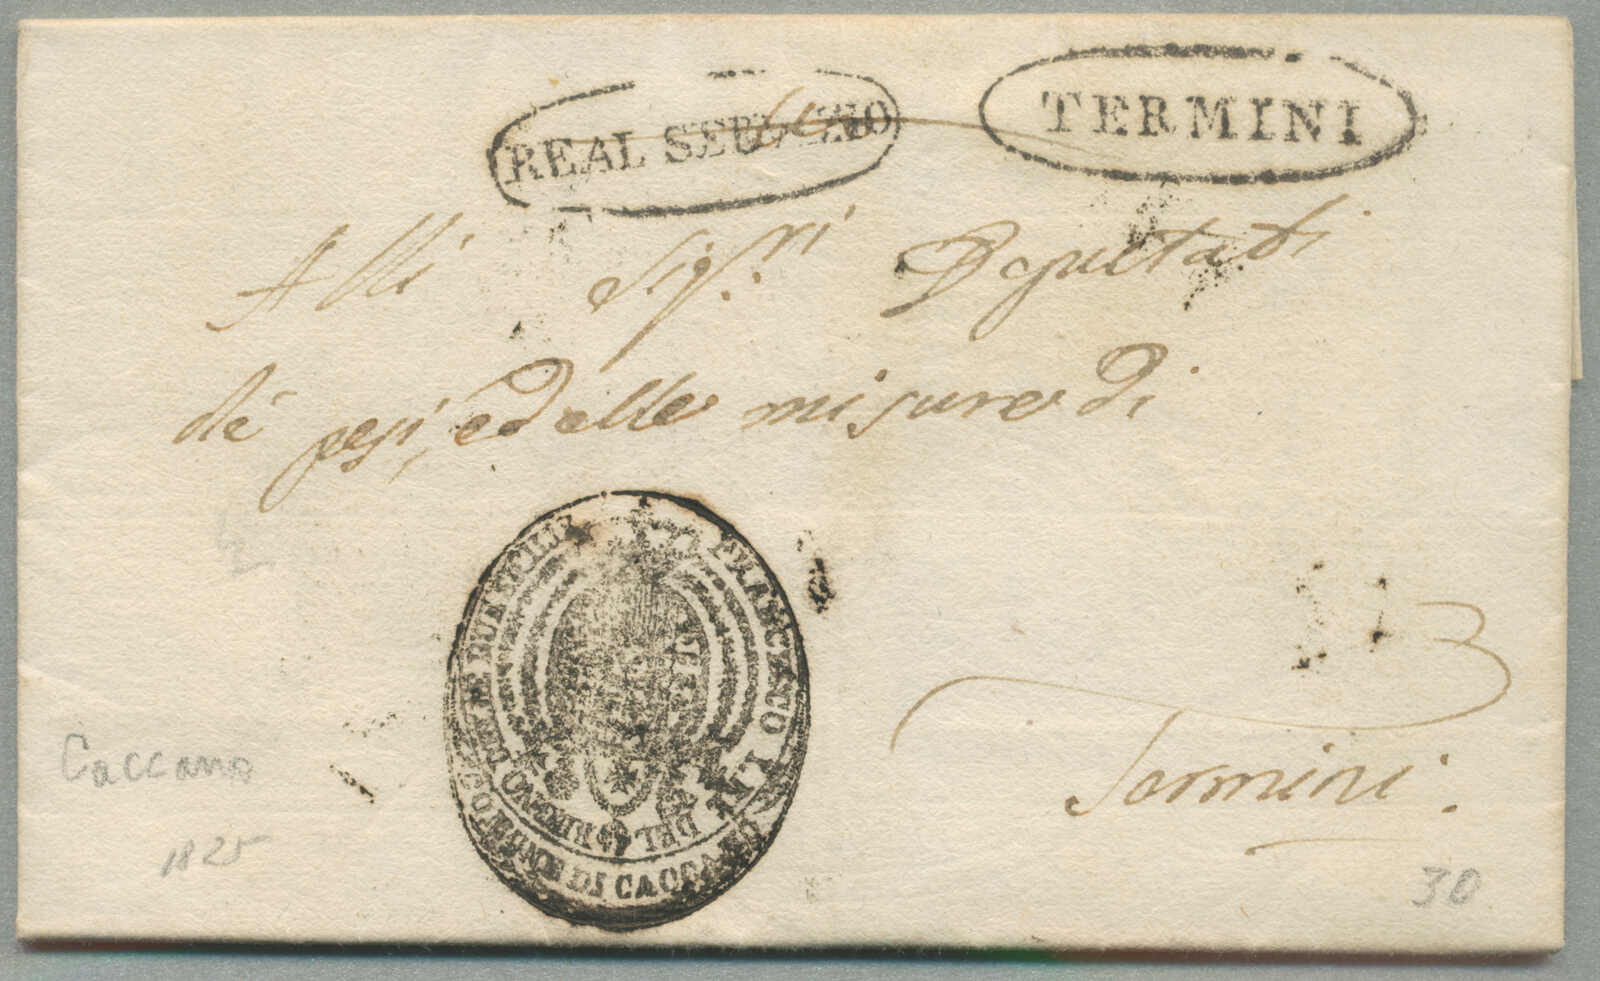 REAL SERVIZIO
TERMINI
Alli Sig.ri Deputati
de pesi, e delle misure di
Termini.
FRANCESCO I RE DEL REGNO DELLE DUE SICILIE
DI CACCAMO
Caccamo
1825
30